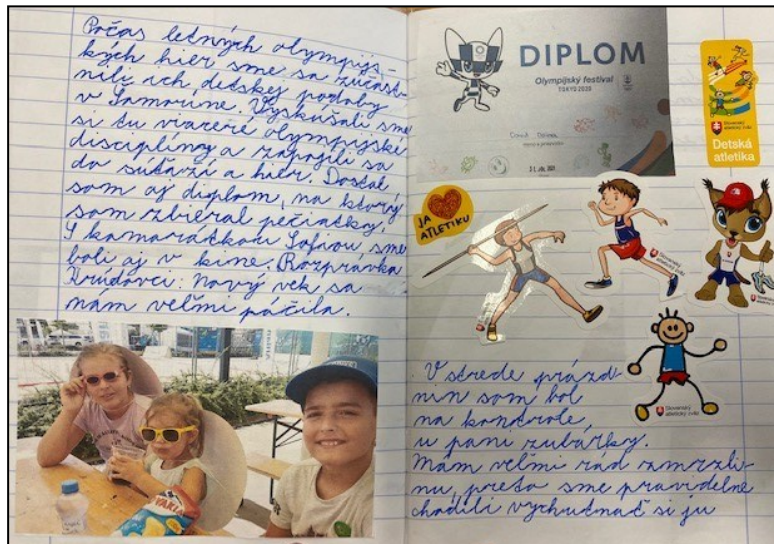 Počas letných olympijs-
kých hier sme sa zúčast-
nili ich detskej podoby
v Šamoríne. Vyskúšali sme
si tu viaceré olympijské
disciplíny a zapojili sa
do súťaží a hier. Dostal
som aj diplom, na ktorý
som zbieral pečiatky.
S kamarátkou Sofiou sme
boli aj v kine. Rozprávka
Krúdovci: Nový vek sa
nám veľmi páčila.
DIPLOM
Olympijský festival
TOKYO 2020
Slovenský
atletický zväz
Detská
atletika
JA
ATLETIKU
Slovenský
atletický zväz
V strede prázd-
nin som bol
na kontrole
u pani zubárky.
Mám veľmi rád zmrzli-
nu, preto sme pravidelne
chodili vychutnať si ju